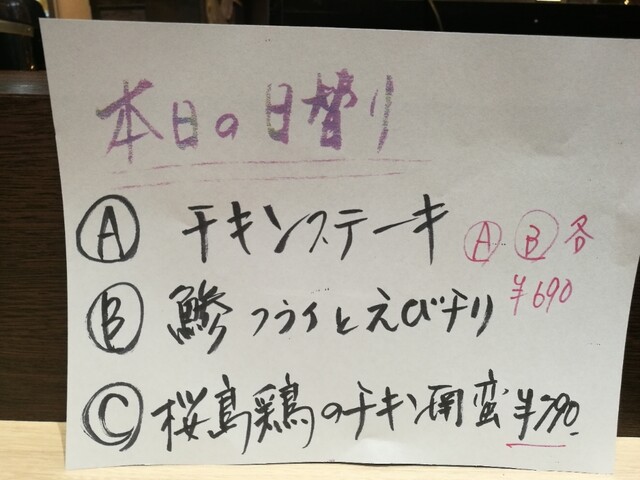 本日の日替り
Ⓐ チキンステーキ
Ⓐ Ⓑ 各
¥690
Ⓑ 鯵フライとえびチリ
Ⓒ 桜島鶏のチキン南蛮 ¥790